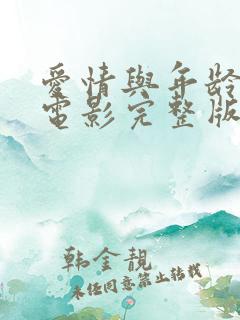 愛情與年齡
電影完整版
韩金靚
未经同意禁止转载